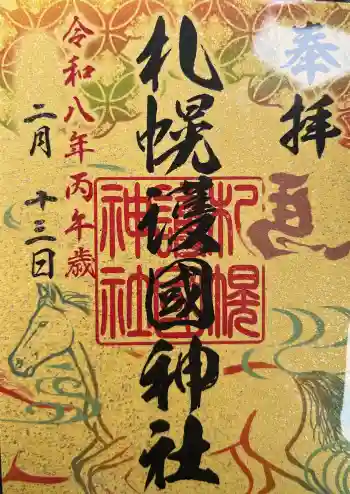 奉
拝
札幌護國神社
札幌
護國
神社
令和八年丙午歳
二月十三日